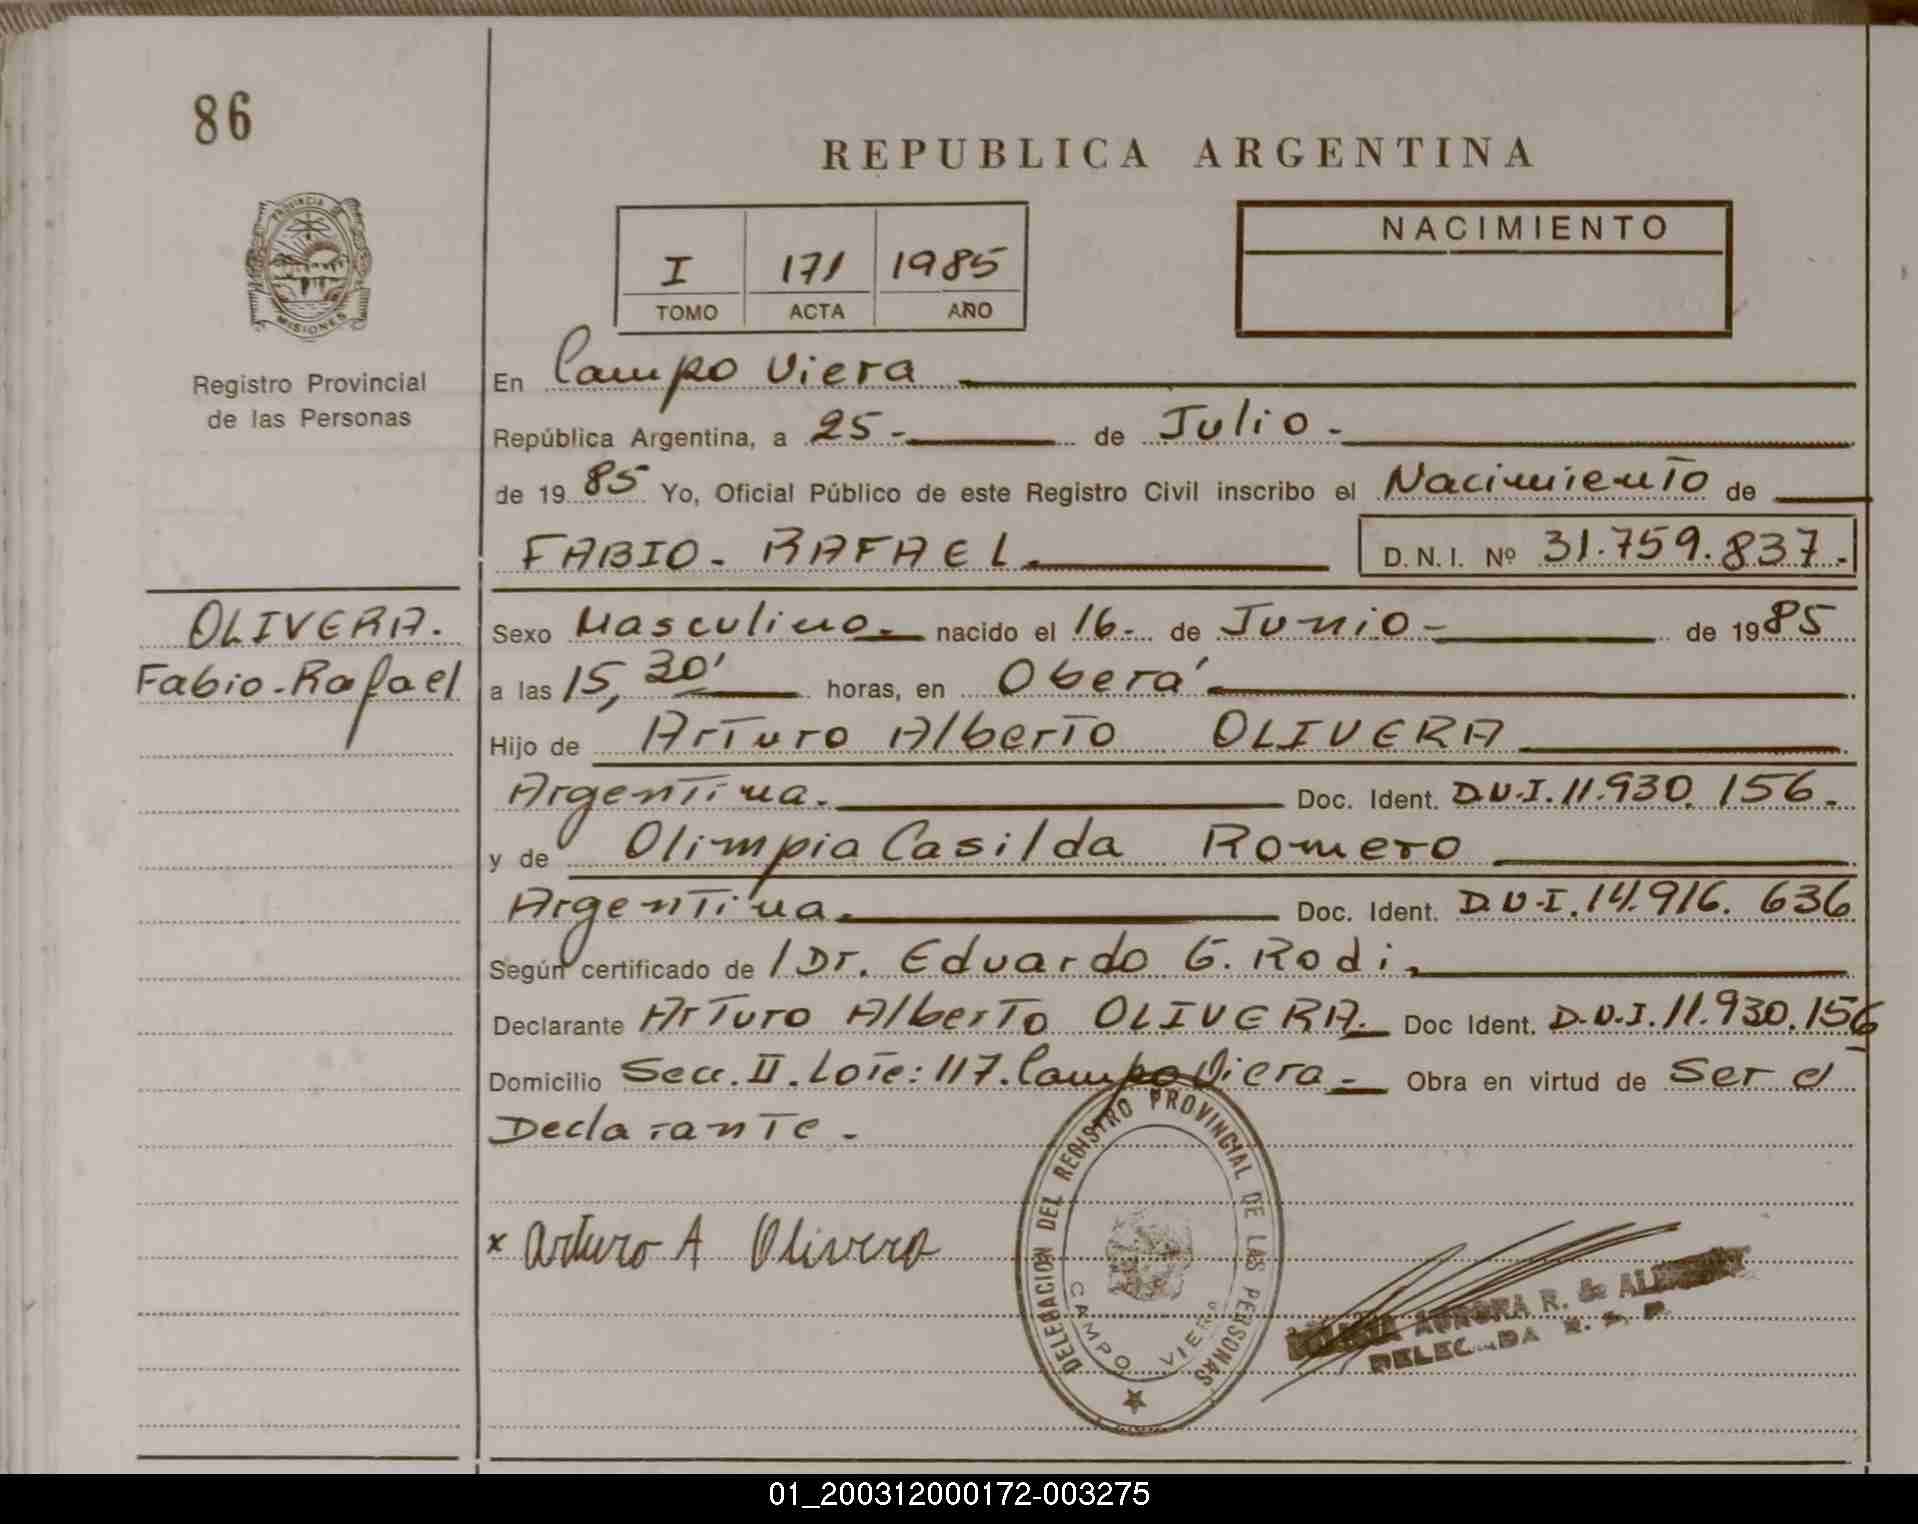 86
REPUBLICA ARGENTINA
PROVINCIA DE
MISIONES
Registro Provincial
de las Personas
I 171 1985
TOMO ACTA AÑO
NACIMIENTO
En Campo Viera
República Argentina, a 25- de Julio-
de 19 85 Yo, Oficial Público de este Registro Civil inscribo el Nacimiento de
FABIO- RAFAEL. D. N. I. Nº 31.759.837.-
OLIVERA.
Fabio-Rafael
Sexo Masculino- nacido el 16- de Junio- de 19 85
a las 15,30' horas, en Oberá
Hijo de Arturo Alberto OLIVERA
Argentina. Doc. Ident. D.N.I. 11.930.156-
y de Olimpia Casilda Romero
Argentina. Doc. Ident. D.N.I. 14.916.636
Según certificado de / Dr. Eduardo G. Rodi,
Declarante Arturo Alberto OLIVERA. Doc Ident. D.N.I. 11.930.156
Domicilio Secc. II. Lote: 117. Campo Viera- Obra en virtud de Ser el
Declarante.
x Arturo A Olivera
DELEGACION DEL REGISTRO PROVINCIAL DE LAS PERSONAS
CAMPO VIERA
AURORA R. de
DELEGADA R. P. P.
01_200312000172-003275